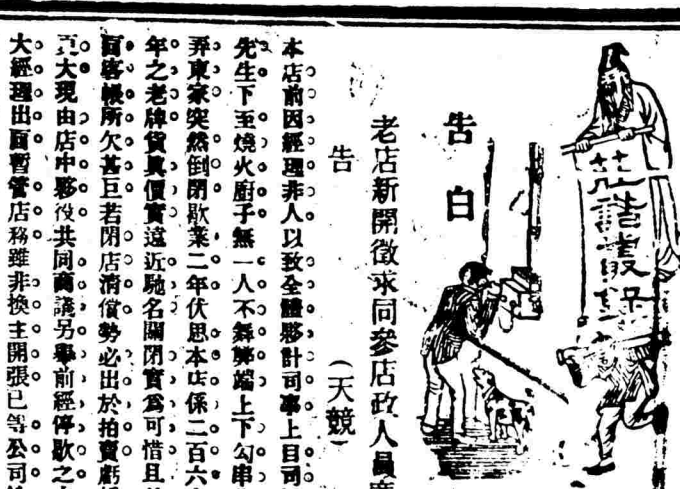 莊諧叢錄
告白
老店新開徵求同參店政人員廣
告
（天競）
本店前因經理非人以致全體夥計司事上目司
先生下至燒火廚子無一人不舞弊端上下勾串
弄東家突然倒閉歇業二年伏思本店係二百六
年之老牌貨眞價實遠近馳名關閉實爲可惜且
客帳所欠甚巨若閉店清償勢必出於拍賣虧
大現由店中夥役共同商議另舉前經停歇之
大經理出面暫管店務雖非換主開張已等公司